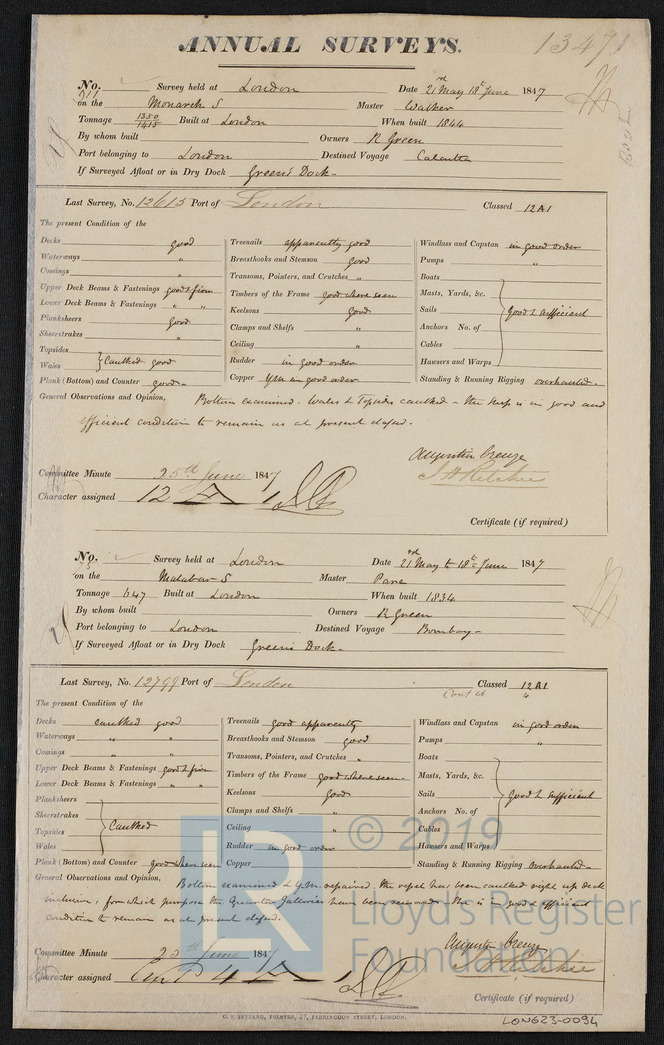 ANNUAL SURVEYS. 13471
No. Survey held at London Date 21rd May 18th June 1847
on the Monarch S Master Walker
Tonnage 1350/1415 Built at London When built 1844
By whom built Owners R Green
Port belonging to London Destined Voyage Calcutta
If Surveyed Afloat or in Dry Dock Green's Dock-
Last Survey, No. 12615 Port of London Classed 12A1
The present Condition of the
Decks good Treenails apparently good Windlass and Capstan in good order
Waterways " Breasthooks and Stemson good Pumps "
Comings " Transoms, Pointers, and Crutches " Boats
Upper Deck Beams & Fastenings good & firm Timbers of the Frame good where seen Masts, Yards, &c.
Lower Deck Beams & Fastenings " " Keelsons good Sails good & sufficient
Planksheers good Clamps and Shelfs " Anchors No. of
Sheerstrakes " Ceiling " Cables
Topsides Rudder in good order Hawsers and Warps
Wales Caulked good
Plank (Bottom) and Counter good- Copper Y.M. in good order Standing & Running Rigging overhauled-
General Observations and Opinion, Bottom examined - Wales & Topsides caulked - the ship is in good and
efficient condition to remain as at present classed.
Augustin Creuze
J H Ritchie
Committee Minute 25th June 1847
Character assigned 12 A 1
Certificate (if required)
No. Survey held at London Date 21rd May to 18th June 1847
on the Malabar S Master Pare
Tonnage 647 Built at London When built 1834
By whom built Owners R Green
Port belonging to London Destined Voyage Bombay-
If Surveyed Afloat or in Dry Dock Green's Dock-
Last Survey, No. 12799 Port of London Classed 12A1
The present Condition of the
Decks caulked good Treenails good apparently Windlass and Capstan in good order
Waterways " " Breasthooks and Stemson good Pumps "
Comings " " Transoms, Pointers, and Crutches " Boats
Upper Deck Beams & Fastenings good & firm Timbers of the Frame good where seen- Masts, Yards, &c.
Lower Deck Beams & Fastenings " " Keelsons good Sails good & sufficient
Planksheers Clamps and Shelfs " Anchors No. of
Sheerstrakes Caulked
Topsides Ceiling " Cables
Wales Rudder in good order Hawsers and Warps
Plank (Bottom) and Counter good where seen Copper Standing & Running Rigging overhauled-
General Observations and Opinion, Bottom examined & Y.M. repaired the vessel has been caulked right up deck
inclusive, for which purpose the Quarter Galleries have been removed. She is in good & efficient
condition to remain as at present classed.
Augustin Creuze
J H Ritchie
Committee Minute 25th June 1847
Character assigned Cont 4 A 1
Certificate (if required)
C. F. SEYFANG, PRINTER, 57, FARRINGDON STREET, LONDON.
LON623-0094
© 2019
Lloyd's Register
Foundation